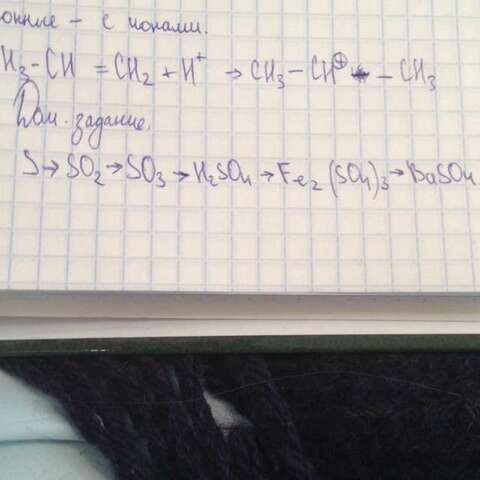 онные - с ионами.
H₃-CH = CH₂ + H⁺ → CH₃ - CH⊕ - CH₃
Дом. задание.
S → SO₂ → SO₃ → H₂SO₄ → Fe₂(SO₄)₃ → BaSO₄